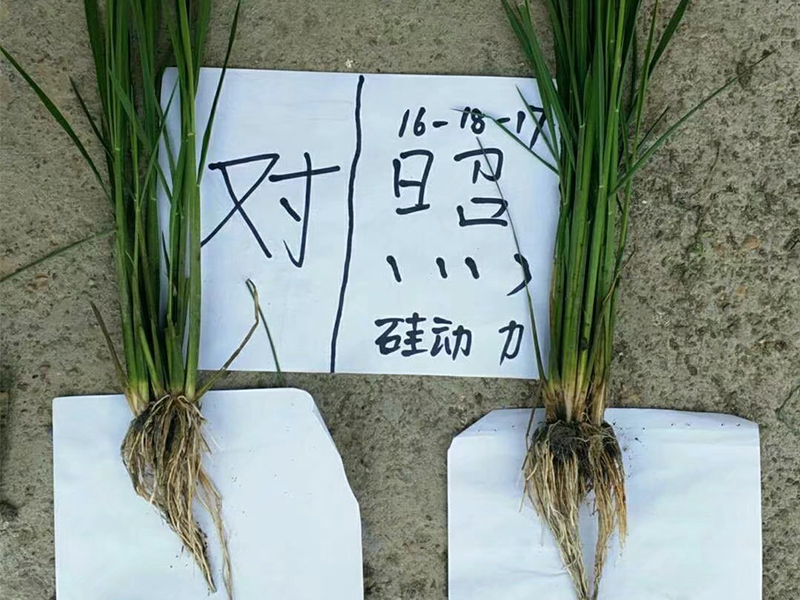 16-18-17
对照
硅动力